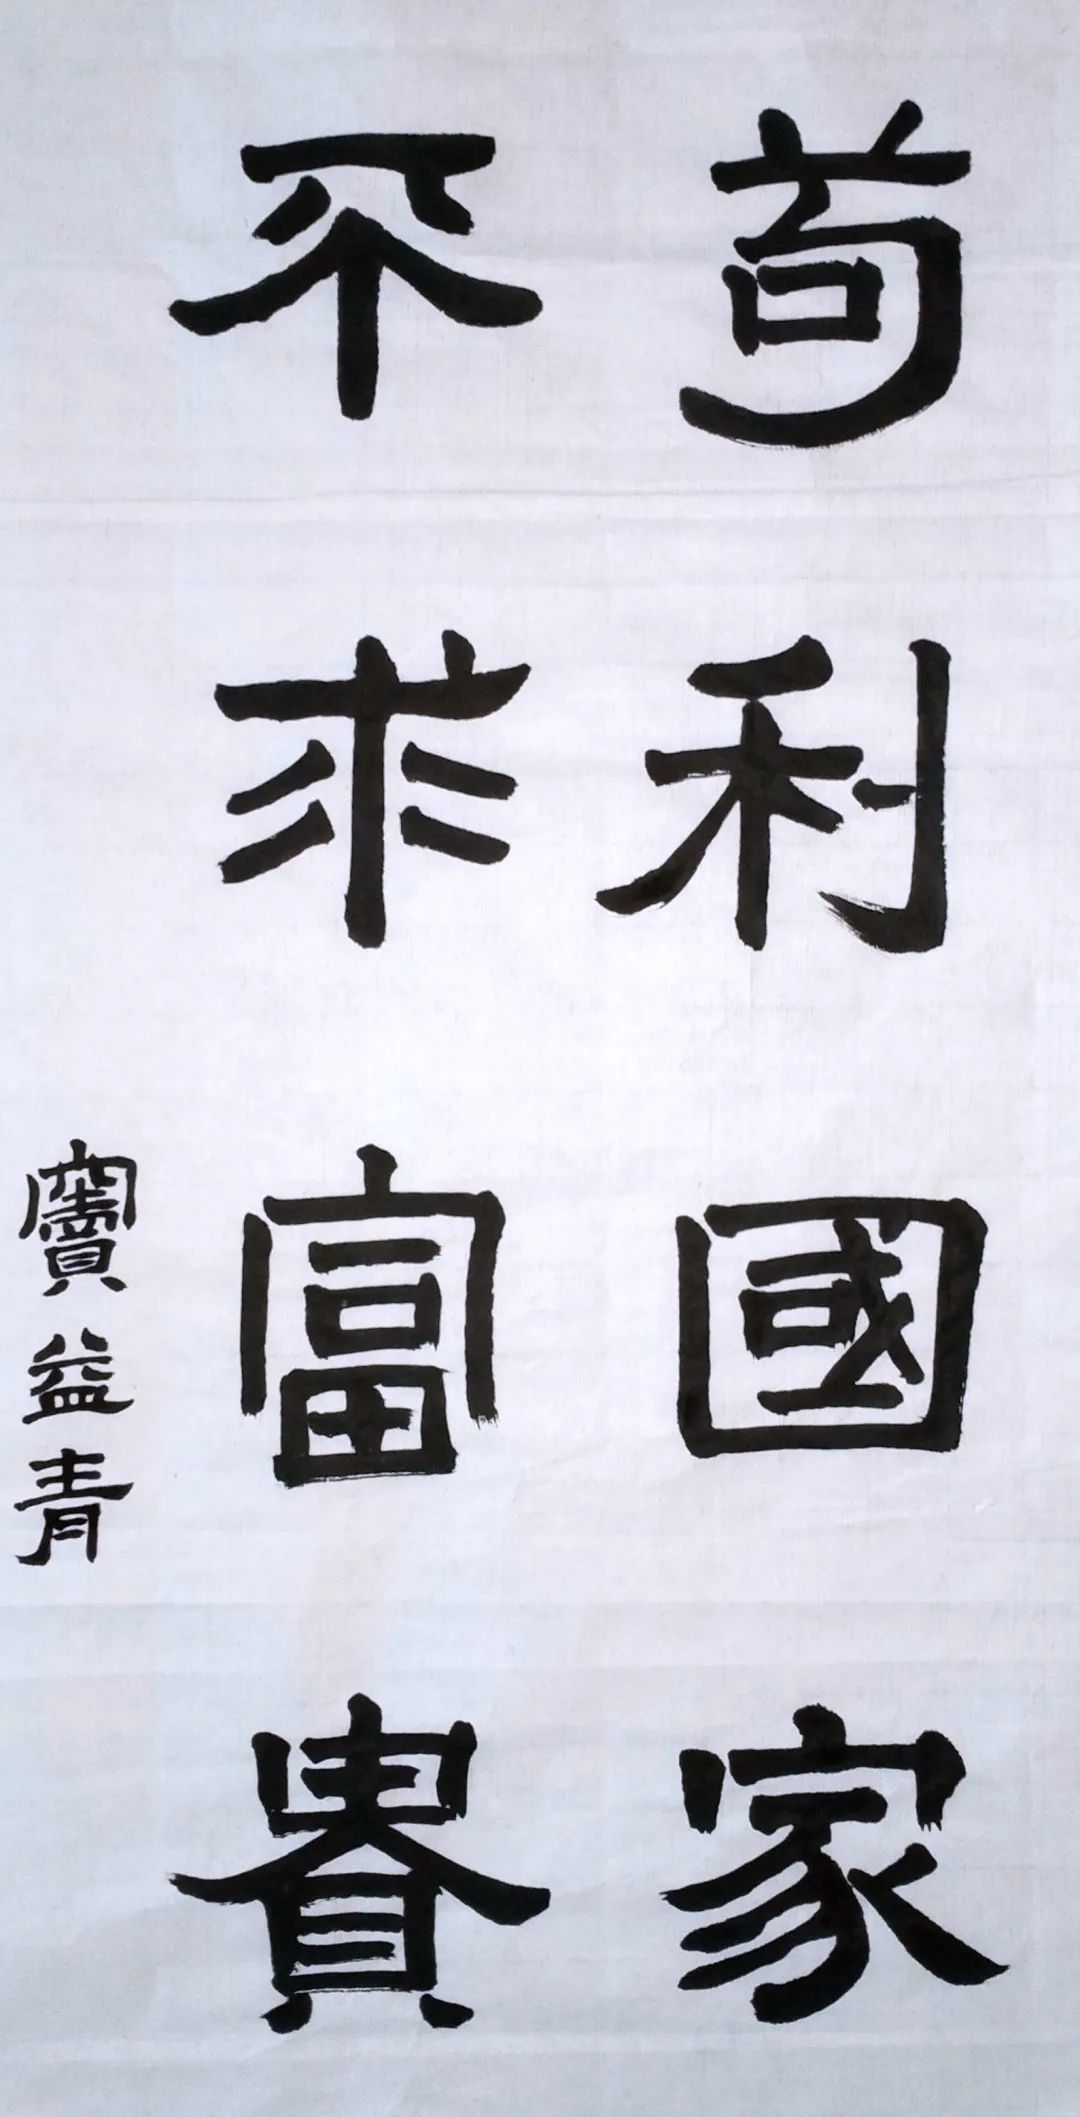 苟利國家
不求富貴
竇益青